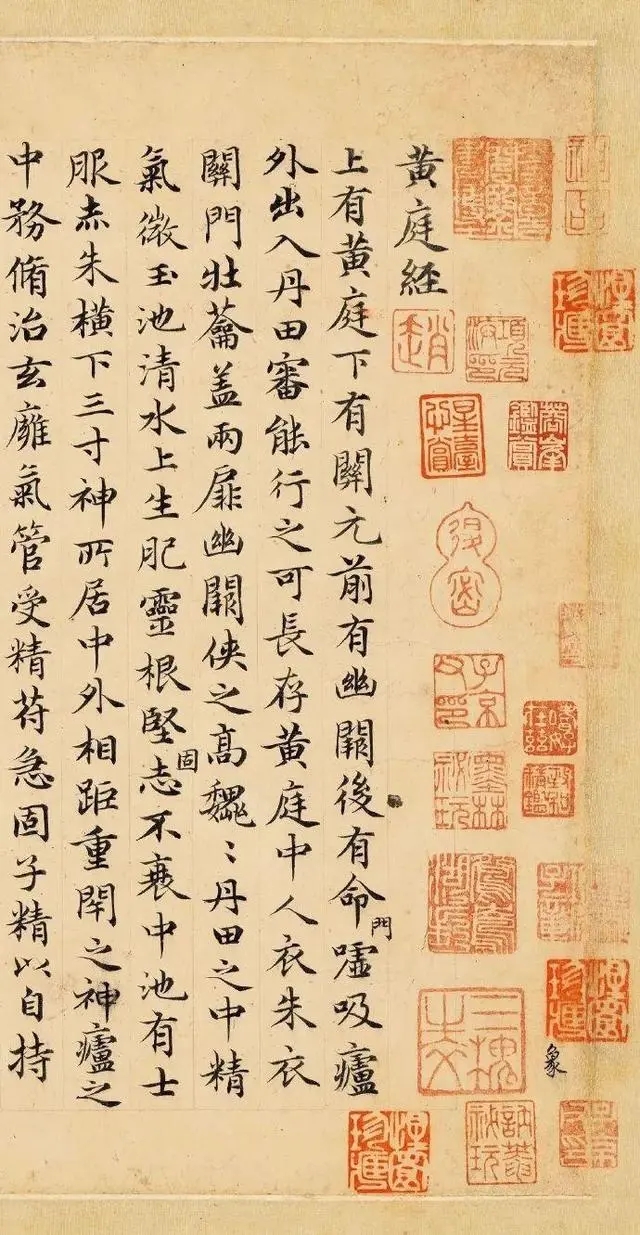 象
墨林秘玩
子京父印
趙
黃庭経
上有黃庭下有關元前有幽闕後有命門噓吸廬
外出入丹田審能行之可長存黃庭中人衣朱衣
關門壯蘥盖兩扉幽闕俠之高魏〻丹田之中精
氣微玉池清水上生肥靈根堅固志不衰中池有士
服赤朱橫下三寸神所居中外相距重閇之神廬之
中務脩治玄廱氣管受精苻急固子精以自持